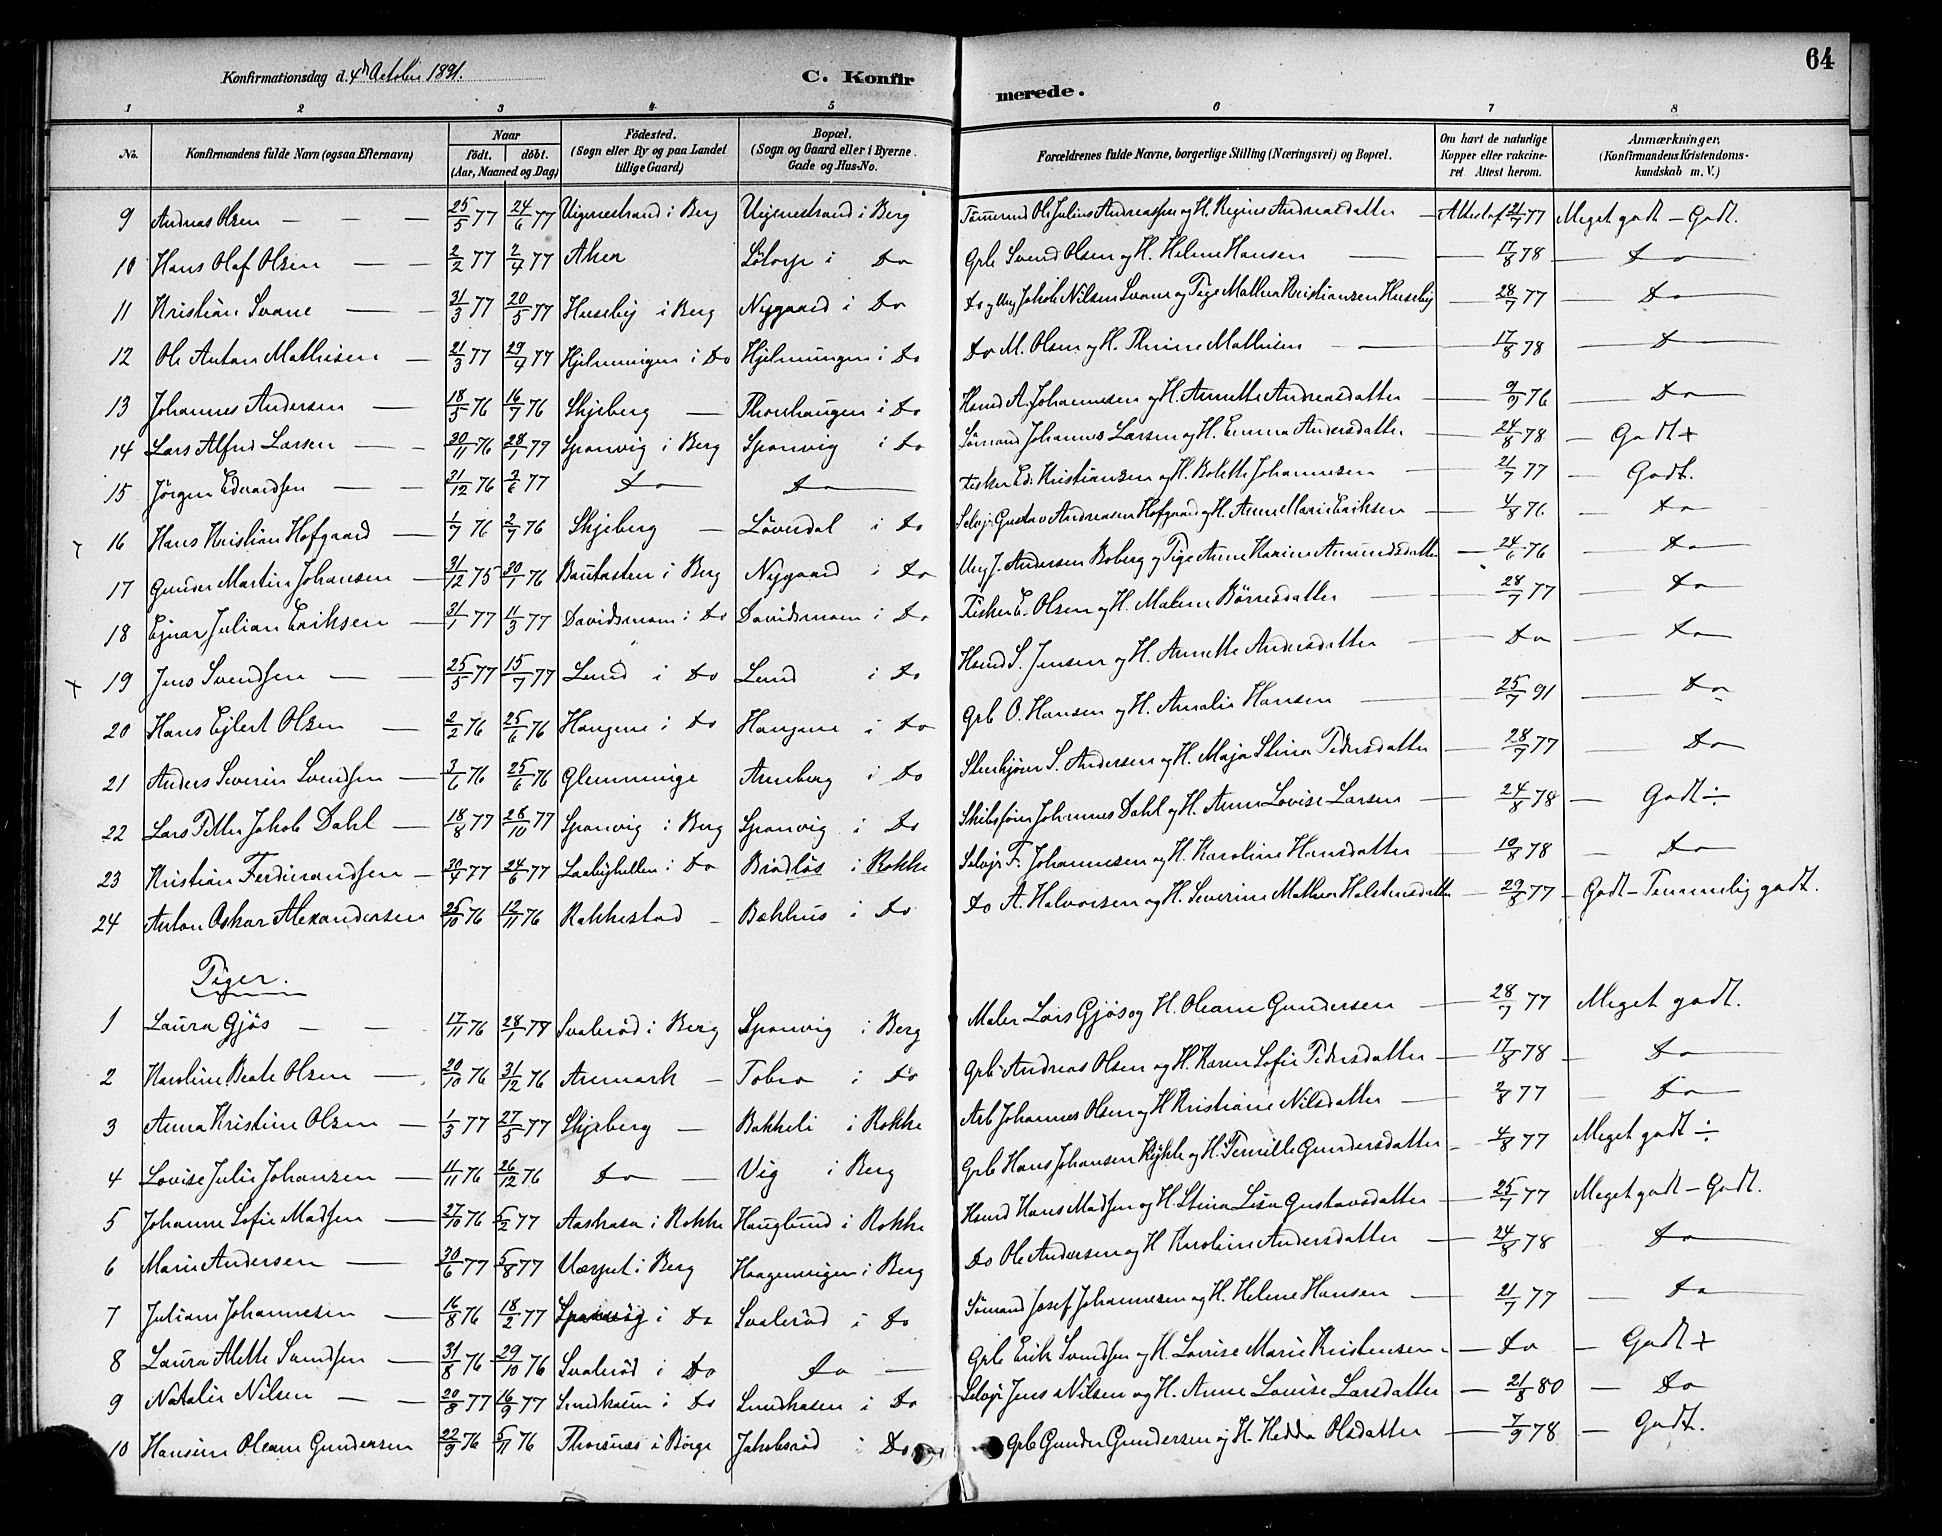 Konfirmationsdag d. 4de October 1891. C. Konfirmerede. 64
1 2 3 4 5 6 7 8
No. Konfirmandens fulde Navn (ogsaa Efternavn) Naar født. døbt. (Aar, Maaned og Dag) Födested. (Sogn eller By og paa Landet tillige Gaard) Bopæl. (Sogn og Gaard eller i Byerne Gade og Hus-No. Forældrenes fulde Navne, borgerlige Stilling (Næringsvei) og Bopæl. Om havt de naturlige Kopper eller vakcineret. Attest herom. Anmærkninger, (Konfirmandens Kristendomskundskab m. V.)
9 Andreas Olsen — 25/5 77 24/6 77 Vigenestrand i Berg Vigenestrand i Berg Tømmermd Ole Julius Andreassen og H. Regine Andreasdatter — Attest af 21/7 77 Meget godt — Godt.
10 Hans Olaf Olsen — 2/2 77 2/4 77 Aker Løtorp i Do Grb Svend Olsen og H. Helene Hansen — 17/8 78 — Do
11 Kristian Svane — 31/3 77 20/5 77 Huseby i Berg Nygaard i Do Do og Ung Jakob Nilsen Svane og Pige Mathea Kristiansen Huseby — 28/7 77 — Do
12 Ole Anton Mathisen — 21/3 77 29/4 77 Hjelmungen i Do Hjelmungen i Do Do M. Olsen og H. Thrine Mathisen — 17/8 78 — Do
13 Johannes Andersen — 18/5 76 16/7 76 Skjeberg — Thonhaugen i Do Hsmd A. Johannesen og H. Annette Andreasdatter — 9/9 76 — Do
14 Lars Alfred Larsen — 30/11 76 28/1 77 Sponvig i Berg Sponvig i Do Sømand Johannes Larsen og H. Emma Andersdatter — 24/8 78 — Godt +
15 Jørgen Edvardsen — 31/12 76 3/6 77 Do Do Fisker Ed. Kristiansen og H. Bolette Johannesen — 21/7 77 — Godt.
16 Hans Kristian Hofgaard — 1/7 76 2/7 76 Skjeberg — Løvendal i Do Selvejr Gustav Andreasen Hofgaard og H. Anne Marie Eriksen — 4/8 76 — Do
17 Gunder Martin Johansen — 31/12 75 30/1 76 Bautasten i Berg Nygaard i Do Ung J. Andersen Boberg og Pige Anne Karine Amundsdatter — 24/6 76 — Do
18 Ejnar Julian Eriksen — 31/1 77 11/3 77 Davidsmom i Do Davidsmom i Do Fisker E. Olsen og H. Malene Börresdatter — 28/7 77 — Do
19 Jens Svendsen — 25/5 77 15/7 77 Lund i Do Lund i Do Hsmd S. Jensen og H. Annette Andersdatter — Do — Do
20 Hans Ejlert Olsen — 2/2 76 25/6 76 Haugene i Do Haugene i Do Grb O. Hansen og H. Amalie Hansen — 25/7 91 — Do
21 Anders Severin Svendsen — 3/6 76 25/6 76 Glemminge Arneberg i Do Stenhjörer S. Andersen og H. Maja Stina Pedersdatter — 28/7 77 — Do
22 Lars Petter Jakob Dahl — 18/8 77 28/10 77 Sponvig i Berg Sponvig i Do Skibsförer Johannes Dahl og H. Anne Lovise Larsen — 24/8 78 — Godt ÷
23 Kristian Ferdinandsen — 30/4 77 24/6 77 Laabyhellen i Do Brödløs i Rokke Selvejr F. Johannesen og H. Karoline Hansdatter — 10/8 78 — Do
24 Anton Oskar Alexandersen 25/10 76 12/11 76 Rakkestad — Bækhus i Do Do A. Halvorsen og H. Severine Mathea Halstensdatter — 29/8 77 — Godt — Temmelig godt.
Piger.
1 Laura Gjös — 17/11 76 28/1 78 Svalerød i Berg Sponvig i Berg Maler Lars Gjös og H. Oleane Gundersen — 28/7 77 Meget godt.
2 Karoline Beate Olsen — 20/10 76 31/12 76 Aremark — Tobro i Do Grb Andreas Olsen og H. Karen Sofie Pedersdatter — 17/8 78 — Do
3 Anna Kristine Olsen — 1/3 77 27/5 77 Skjeberg — Bakkeli i Rokke Arb Johannes Olsen og H Kristiane Nilsdatter — 2/8 77 — Do
4 Lovise Julie Johansen — 11/11 76 26/12 76 Do — Vig i Berg Grb Hans Johansen Kykle og H. Pernille Gundersdatter — 4/8 77 Meget godt ÷
5 Johanne Sofie Madsen — 27/10 76 5/2 77 Aashasa i Rokke Hauglund i Rokke Hsmd Hans Madsen og H. Stina Lisa Gustavsdatter — 25/7 77 Meget godt — Godt.
6 Marie Andersen — 30/6 77 5/8 77 Værpet i Berg Haagenrigen i Berg Do Ole Andersen og H Karoline Andersdatter — 24/8 78 — Do
7 Juliane Johannesen — 16/8 76 18/2 77 Sponvig i Do Svalerød i Do Sømand Josef Johannesen og H. Helene Hansen — 21/7 77 — Do
8 Laura Alette Svendsen — 31/8 76 29/10 76 Svalerød i Do Do — Grb Erik Svendsen og H. Lovise Marie Kristensen — Do — Godt +
9 Natalie Nilsen — 20/8 77 16/9 77 Sundkasen i Do Sundkasen i Do Selvejr Jens Nilsen og H. Anne Lovise Larsdatter — 21/8 80 — Do
10 Hansine Oleane Gundersen 22/9 76 5/11 76 Thorsnæs i Borge Jakobsrød i Do Grb Gunder Gundersen og H. Hedda Olsdatter — 7/9 78 — Godt.